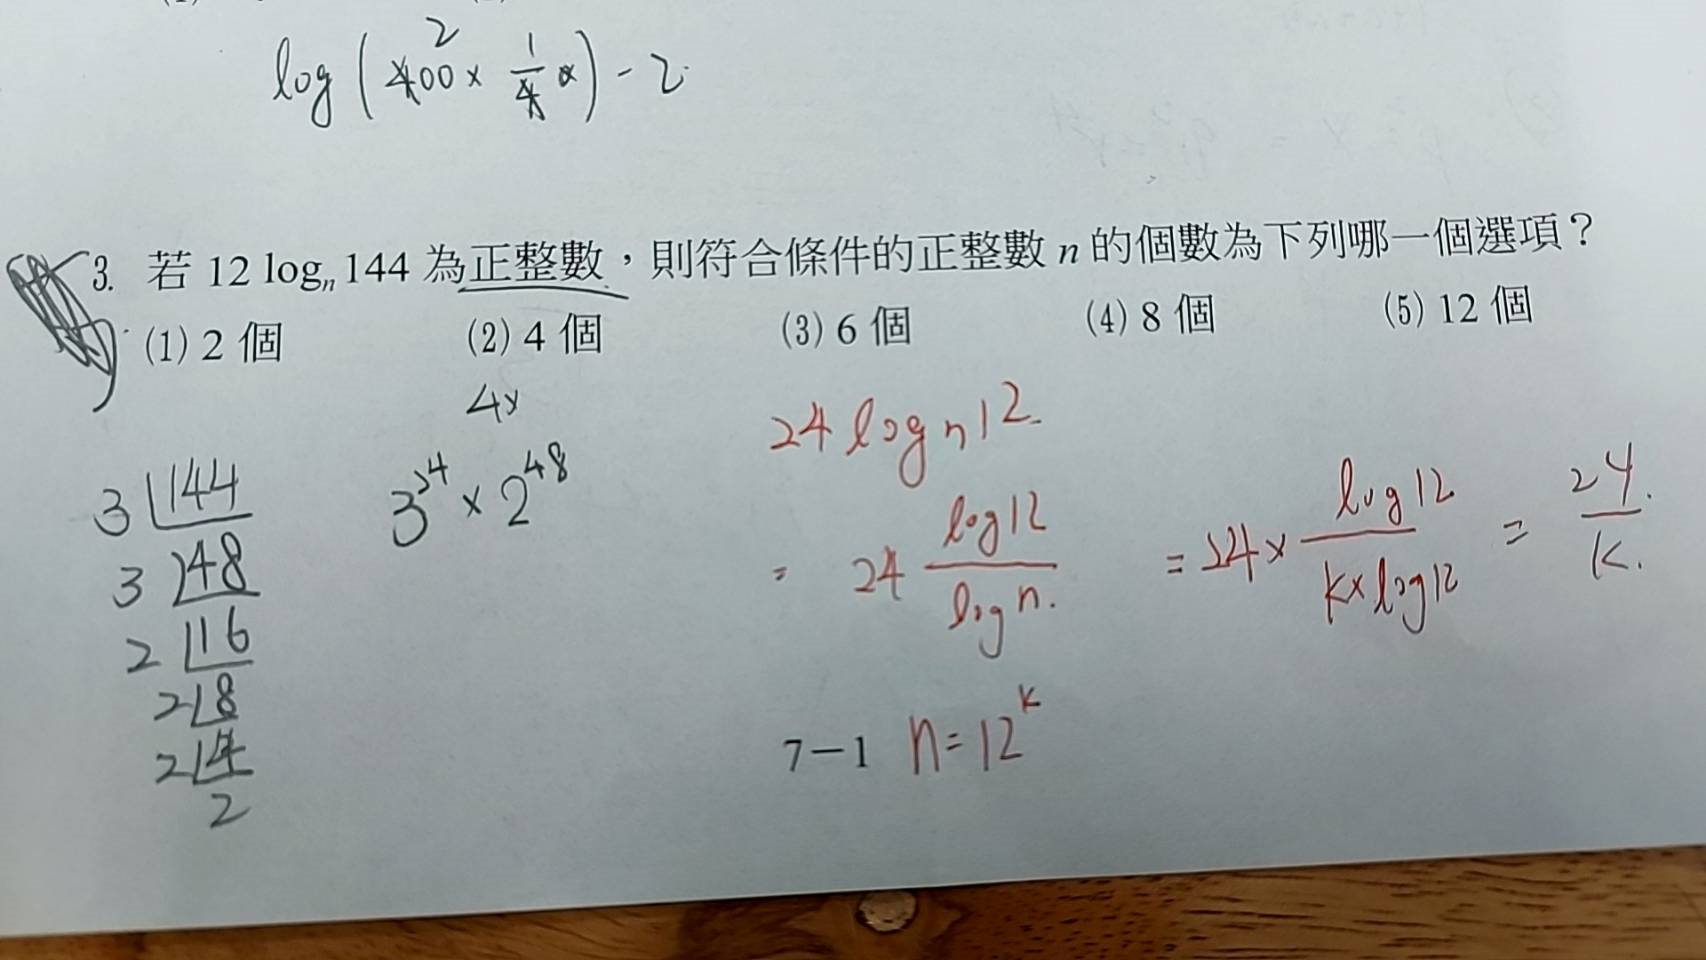 log(400 × 1/4 x) - 2
2
3. 若 12 logₙ 144 為正整數，則符合條件的正整數 n 的個數為下列哪一個選項？
(1) 2 個 (2) 4 個 (3) 6 個 (4) 8 個 (5) 12 個
4x
24 log n 12
3 144
3 48
2 16
2 8
2 4
2
3²⁴ × 2⁴⁸
= 24 log12 / log n. = 24 × log12 / k×log12 = 24 / k.
7－1 n = 12ᵏ